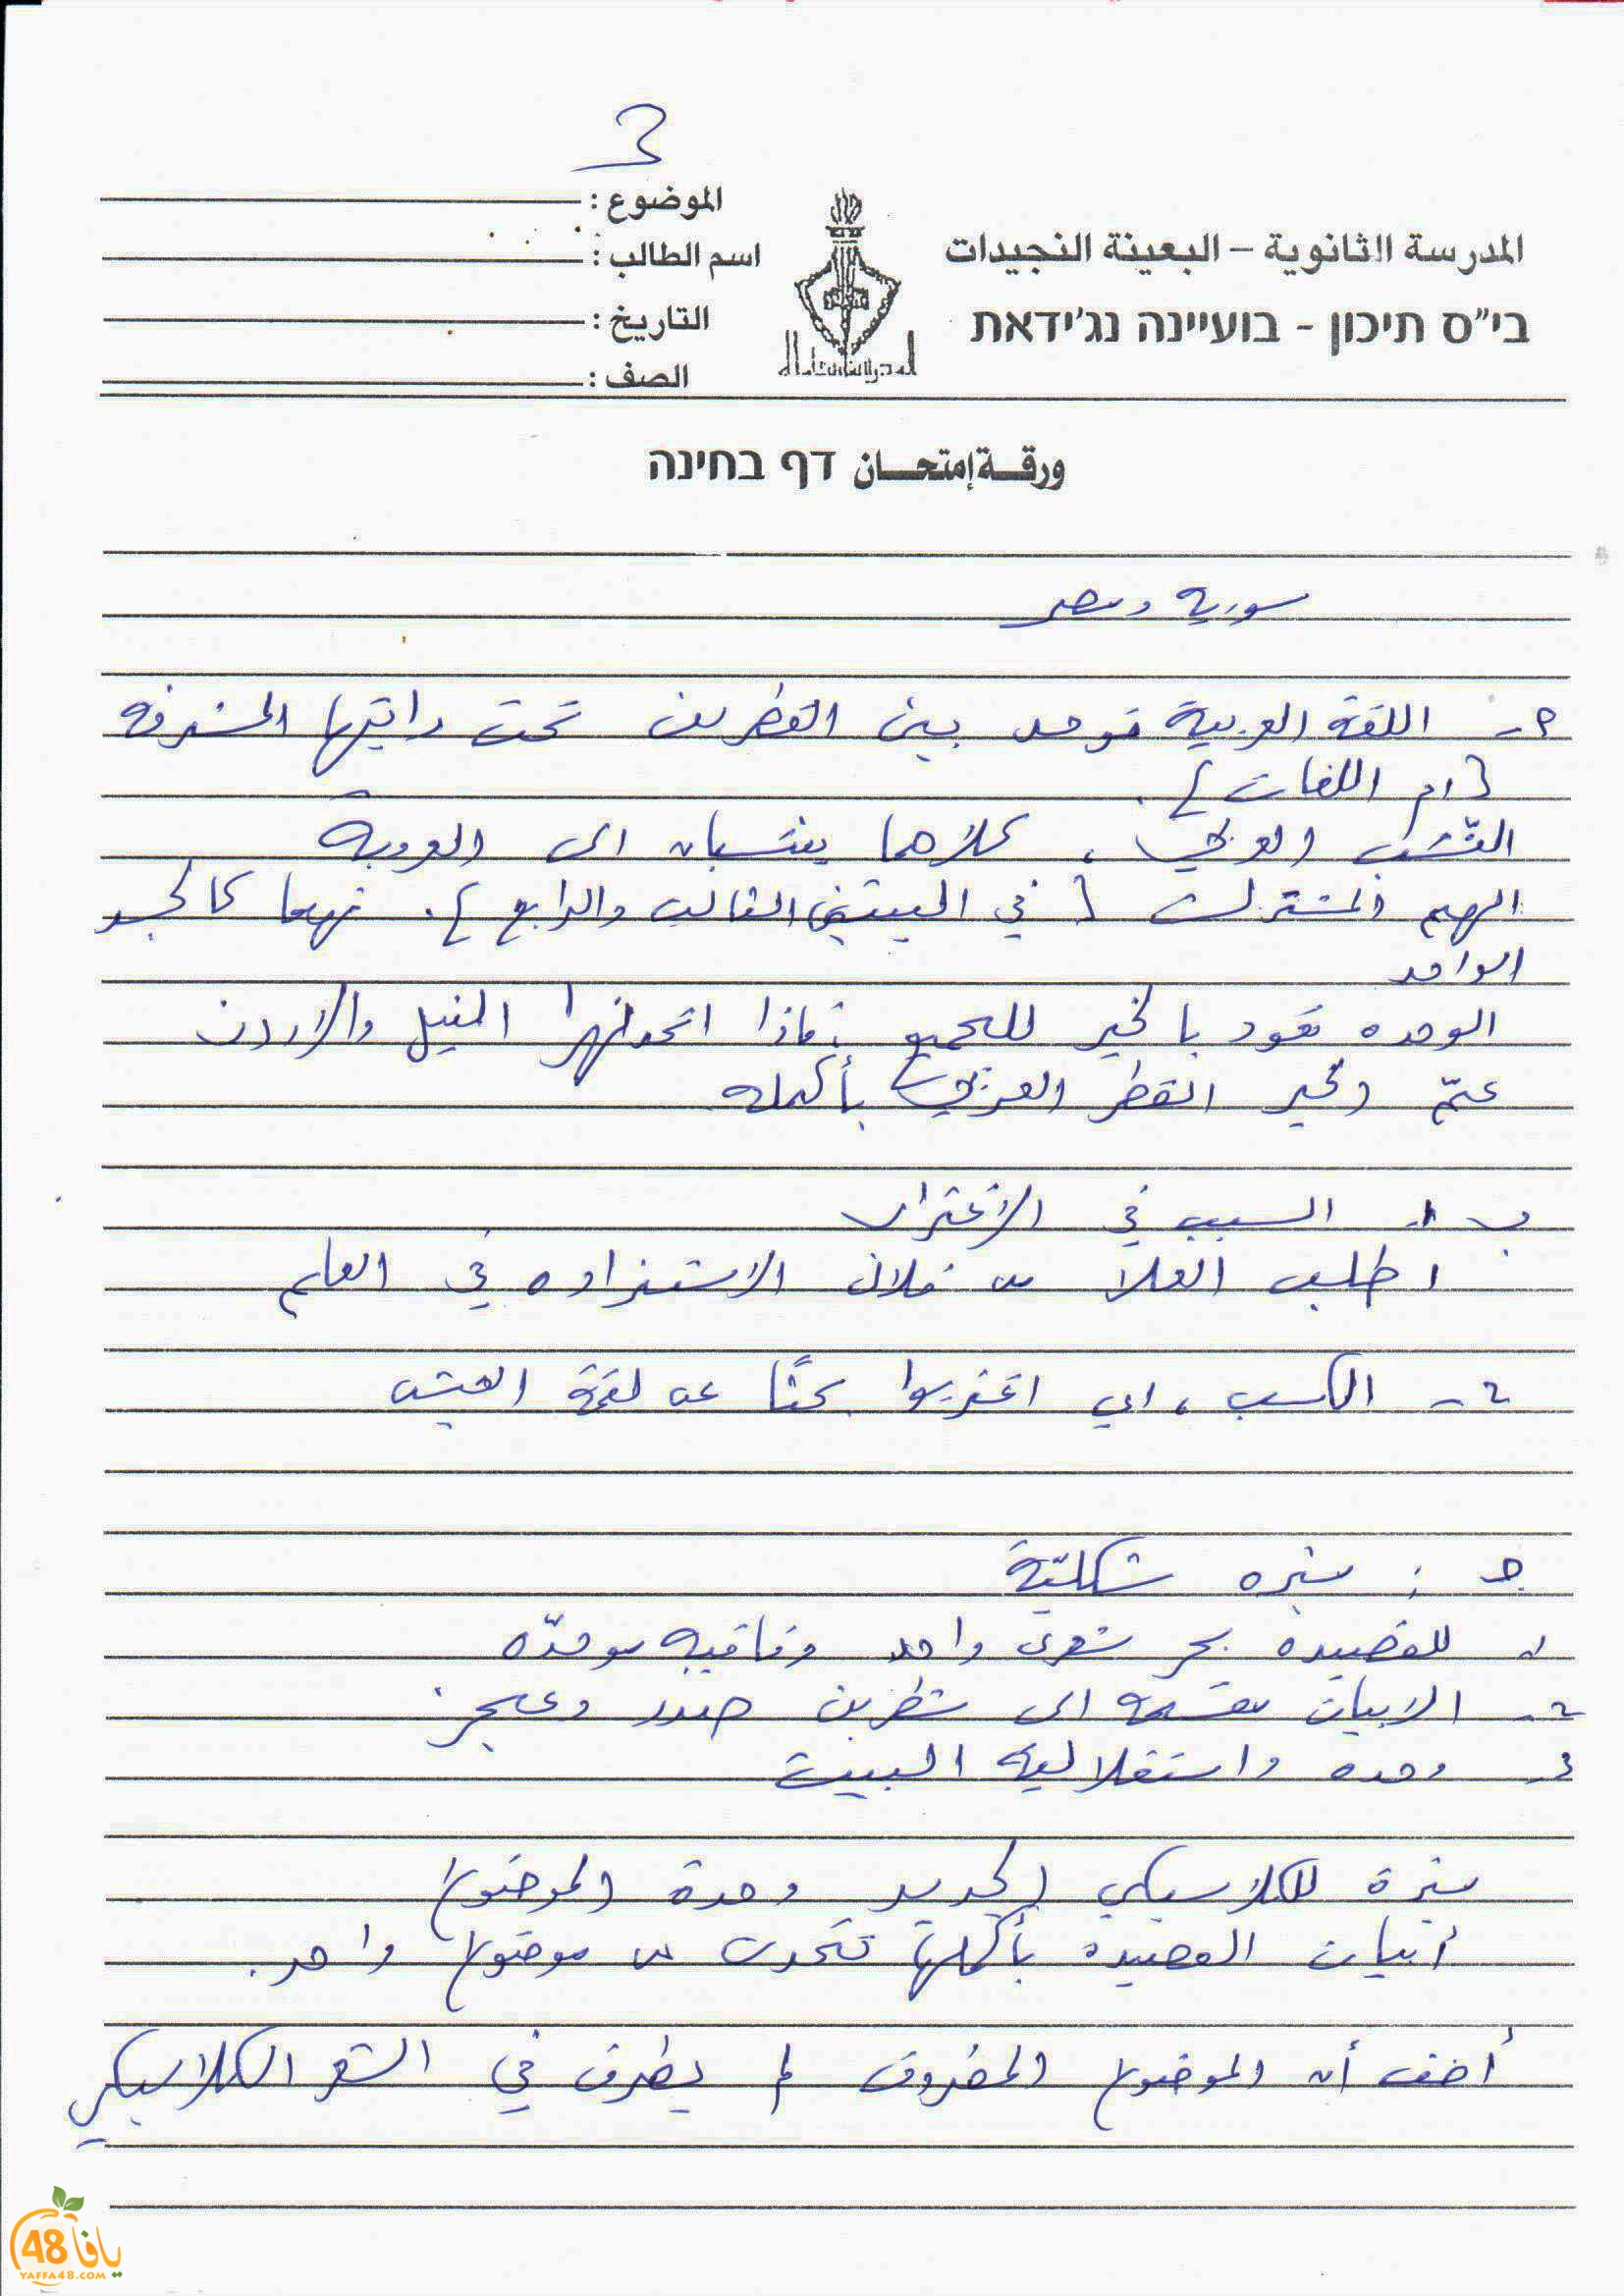 3
المدرسة الثانوية – البعينة النجيدات
בי"ס תיכון - בועיינה נג'ידאת
الموضوع :
اسم الطالب :
التاريخ :
الصف :
ورقة إمتحان דף בחינה
سورية ومصر
٢- اللغة العربية توحد بين القطرين تحت رايتها المشرفه
{ام اللغات}.
الشعب العربي، كلاهما ينتسبان الى العروبة
الهم المشترك {في البيتين الثالث والرابع}. فهما كالجسد
الواحد
الوحده تعود بالخير للجميع فاذا اتحد نهرا النيل والاردن
عمّ الخير القطر العربي بأكمله
ب ١. السبب في الاغتراب
طلب العلا من خلال الاستزاده في العلم
٢- الكسب، اي اغتربوا بحثًا عن لقمة العيش
جـ : ميزه شكليّة
١. للقصيده بحر شعري واحد وقافيه موحدّه
٢- الابيات مقسمه الى شطرين صدر وعجز.
٣- وحده واستقلالية البيت
ميزة للكلاسيكي الجديد وحدة الموضوع
أبيات القصيدة بأكملها تتحدث عن موضوع واحد.
أضف أن الموضوع المطروق لم يطرق في الشعر الكلاسيكي
يافا 48
YAFFA48.COM